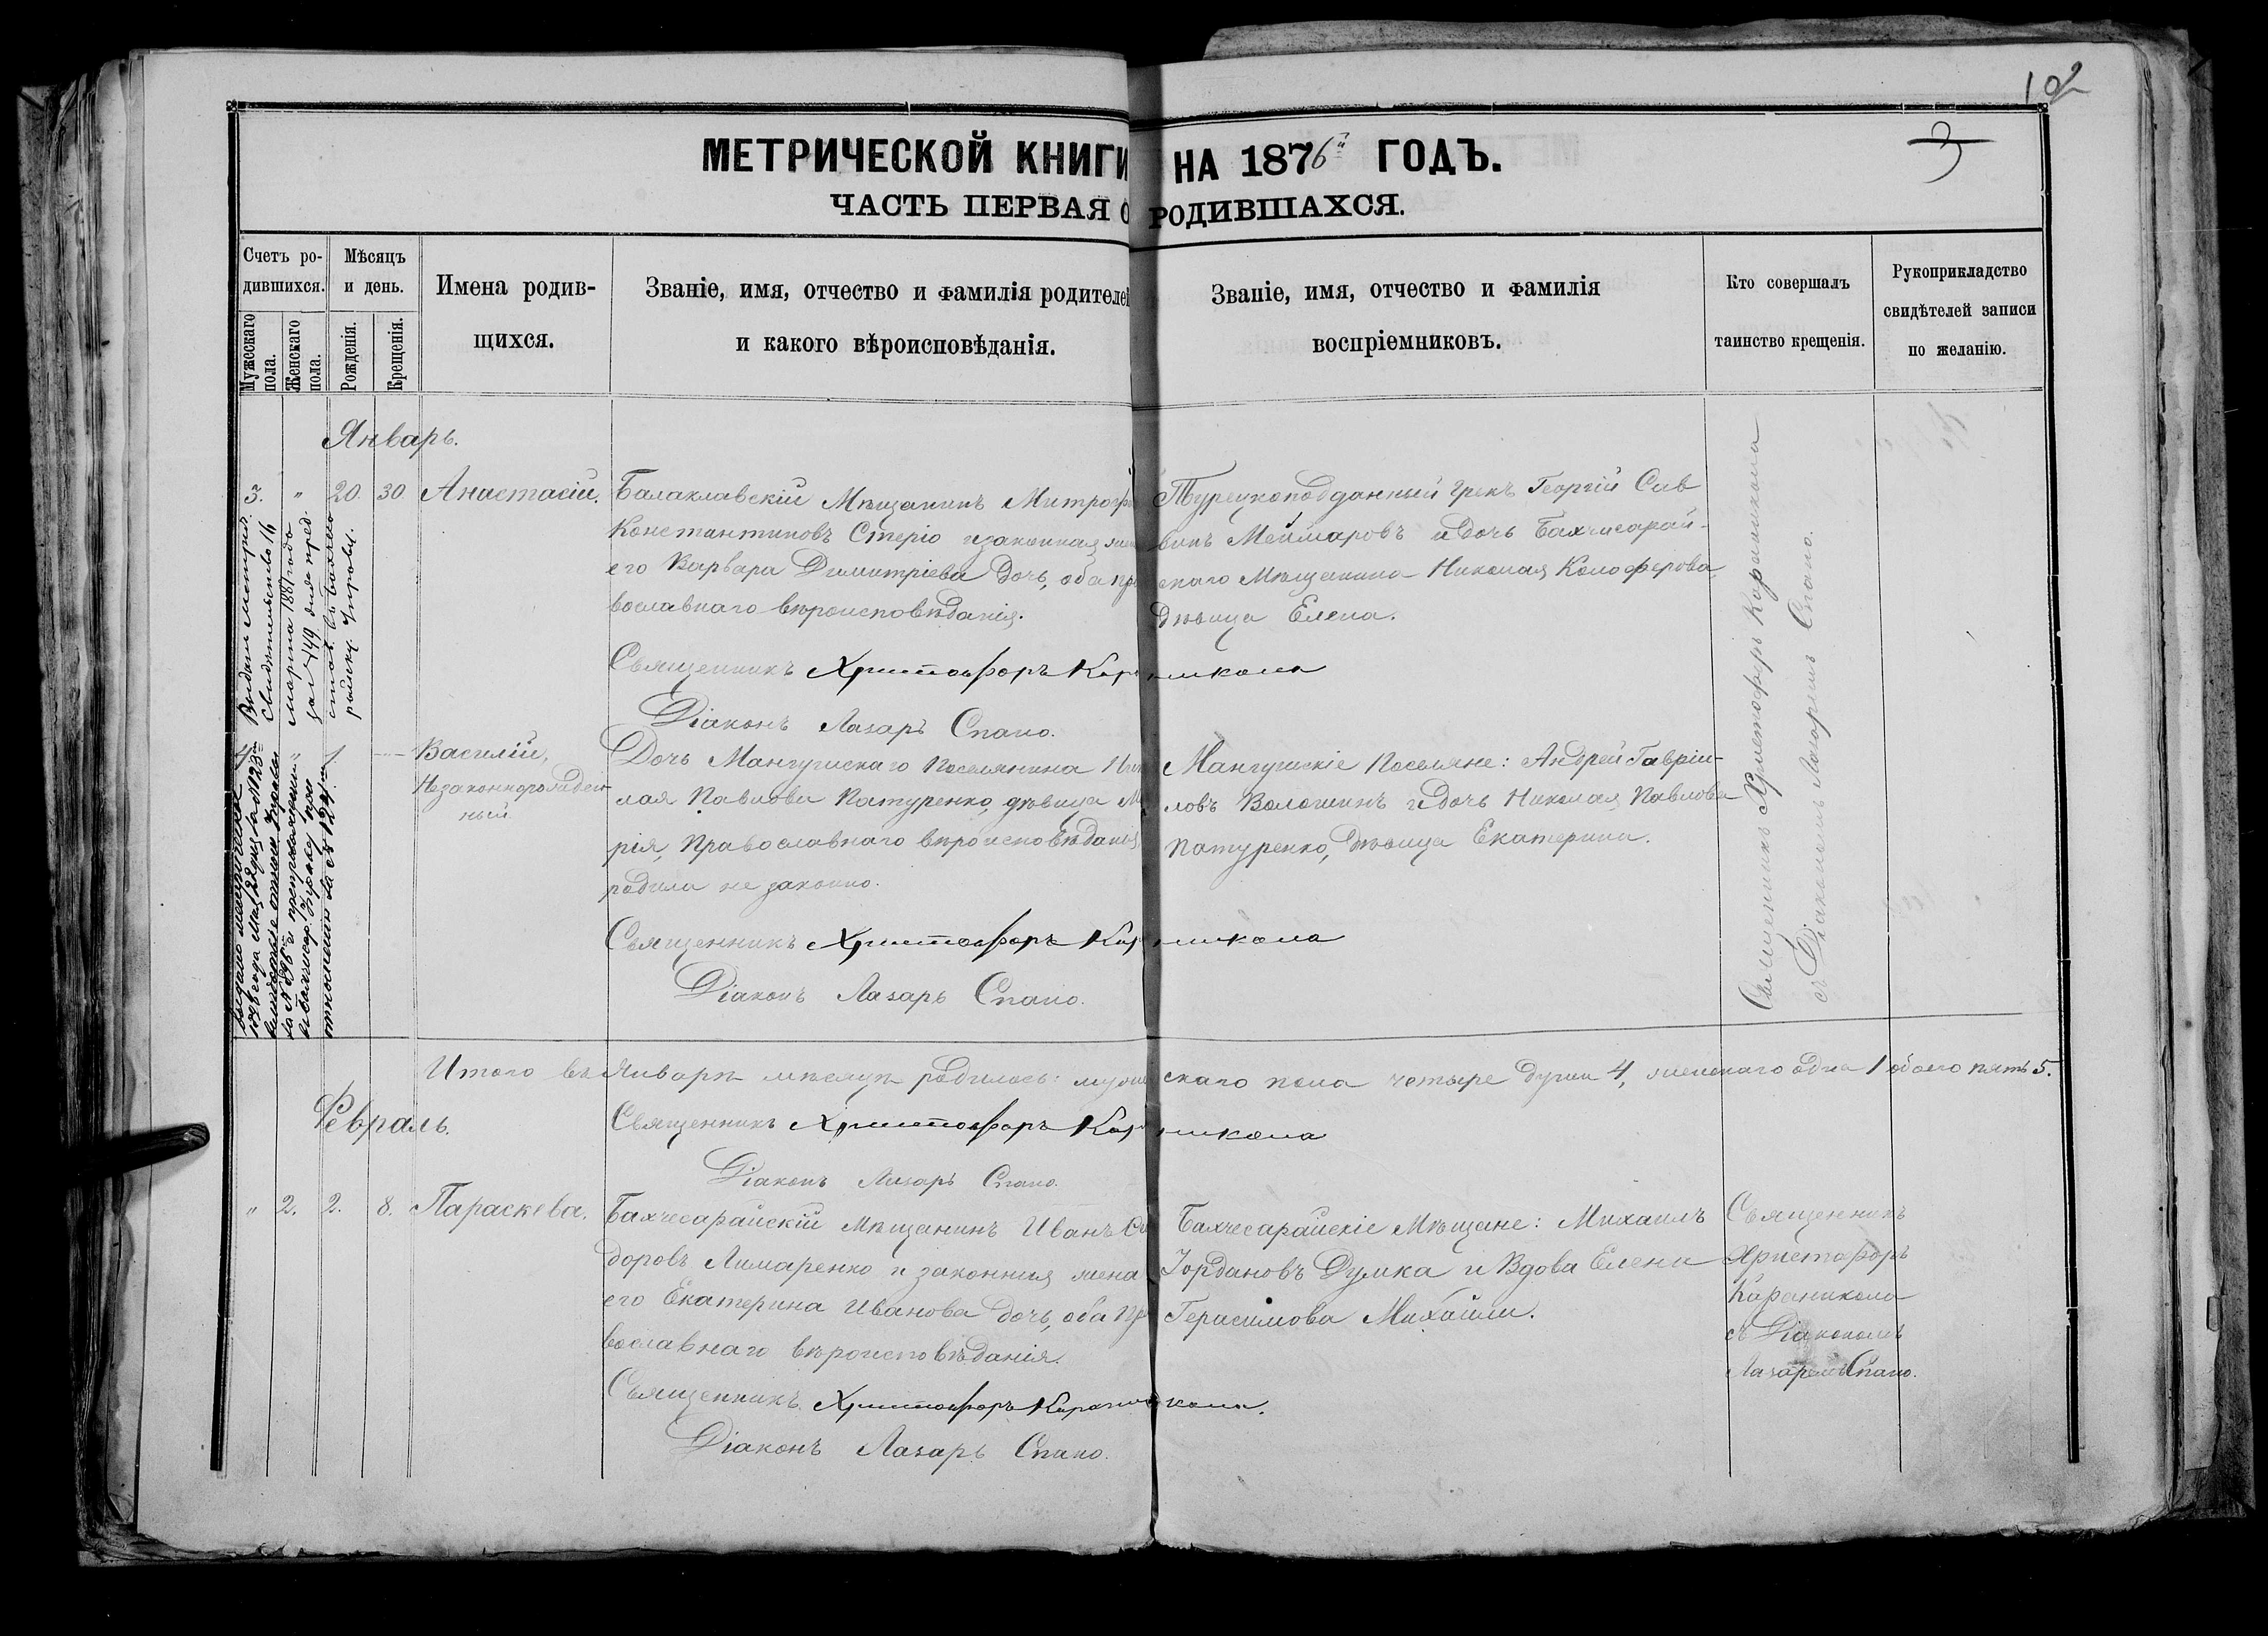 102
3
МЕТРИЧЕСКОЙ КНИГИ НА 1876й ГОДЪ.
ЧАСТЬ ПЕРВАЯ О РОДИВШАХСЯ.
Счетъ ро-
дившихся.
Мужескаго пола.
Женскаго пола.
Мѣсяцъ
и день.
Рожденія.
Крещенія.
Имена родив-
щихся.
Званіе, имя, отчество и фамилія родителей
и какого вѣроисповѣданія.
Званіе, имя, отчество и фамилія
воспріемниковъ.
Кто совершалъ
таинство крещенія.
Рукоприкладство
свидѣтелей записи
по желанію.
Январь.
3. " 20. 30. Анастасій.
Балаклавскій Мѣщанинъ Митроф
Константиновъ Стеріо и законная жен
его Варвара Димитріева дочь, оба пра
вославнаго вѣроисповѣданія.
Священникъ Христофоръ Караникола
Діаконъ Лазарь Спано.
Турецкоподданный Грекъ Георгій Сав
винъ Меймаровъ и дочь Бахчисарай-
скаго Мѣщанина Николая Колоферова,
дѣвица Елена.
Священникъ Христофоръ Караникола
съ Діакономъ Лазаремъ Спано.
Выдан метрич.
Свидѣтельство 16
марта 1887 года
за № 49 для пред.
4 " 1. — Василій,
Незаконнорожден-
ный
Дочь Мангушскаго Поселянина Ник
лая Павлова Патуренко, дѣвица Ма
рія, Православнаго вѣроисповѣданія
родила не законно.
Священникъ Христофоръ Караникола
Діаконъ Лазарь Спано.
Мангушскіе Поселяне: Андрей Гавріи-
ловъ Волошинъ и дочь Николая Павлова
Патуренко, дѣвица Екатерина.
Итого въ Январѣ мѣсяцѣ родилось: мужескаго пола четыре души 4, женскаго одна 1 обоего пять 5.
Священникъ Христофоръ Караникола
Діаконъ Лазарь Спано.
Февраль.
" 2. 2. 8. Параскева.
Бахчесарайскій Мѣщанинъ Иванъ Си
доровъ Лимаренко и законная жена
его Екатерина Иванова дочь, оба Пра
вославнаго вѣроисповѣданія.
Священникъ Христофоръ Караникола.
Діаконъ Лазарь Спано.
Бахчесарайскіе Мѣщане: Михаилъ
Іордановъ Думка и Вдова Елена
Герасимова Михайли.
Священникъ
Христофоръ
Караникола
съ Діакономъ
Лазаремъ Спано.